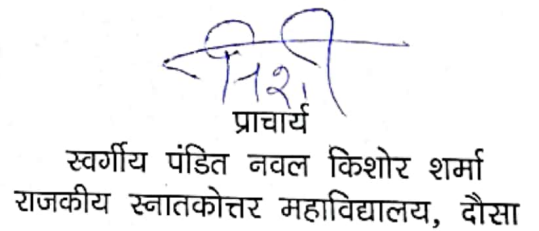 प्राचार्य
स्वर्गीय पंडित नवल किशोर शर्मा
राजकीय स्नातकोत्तर महाविद्यालय, दौसा